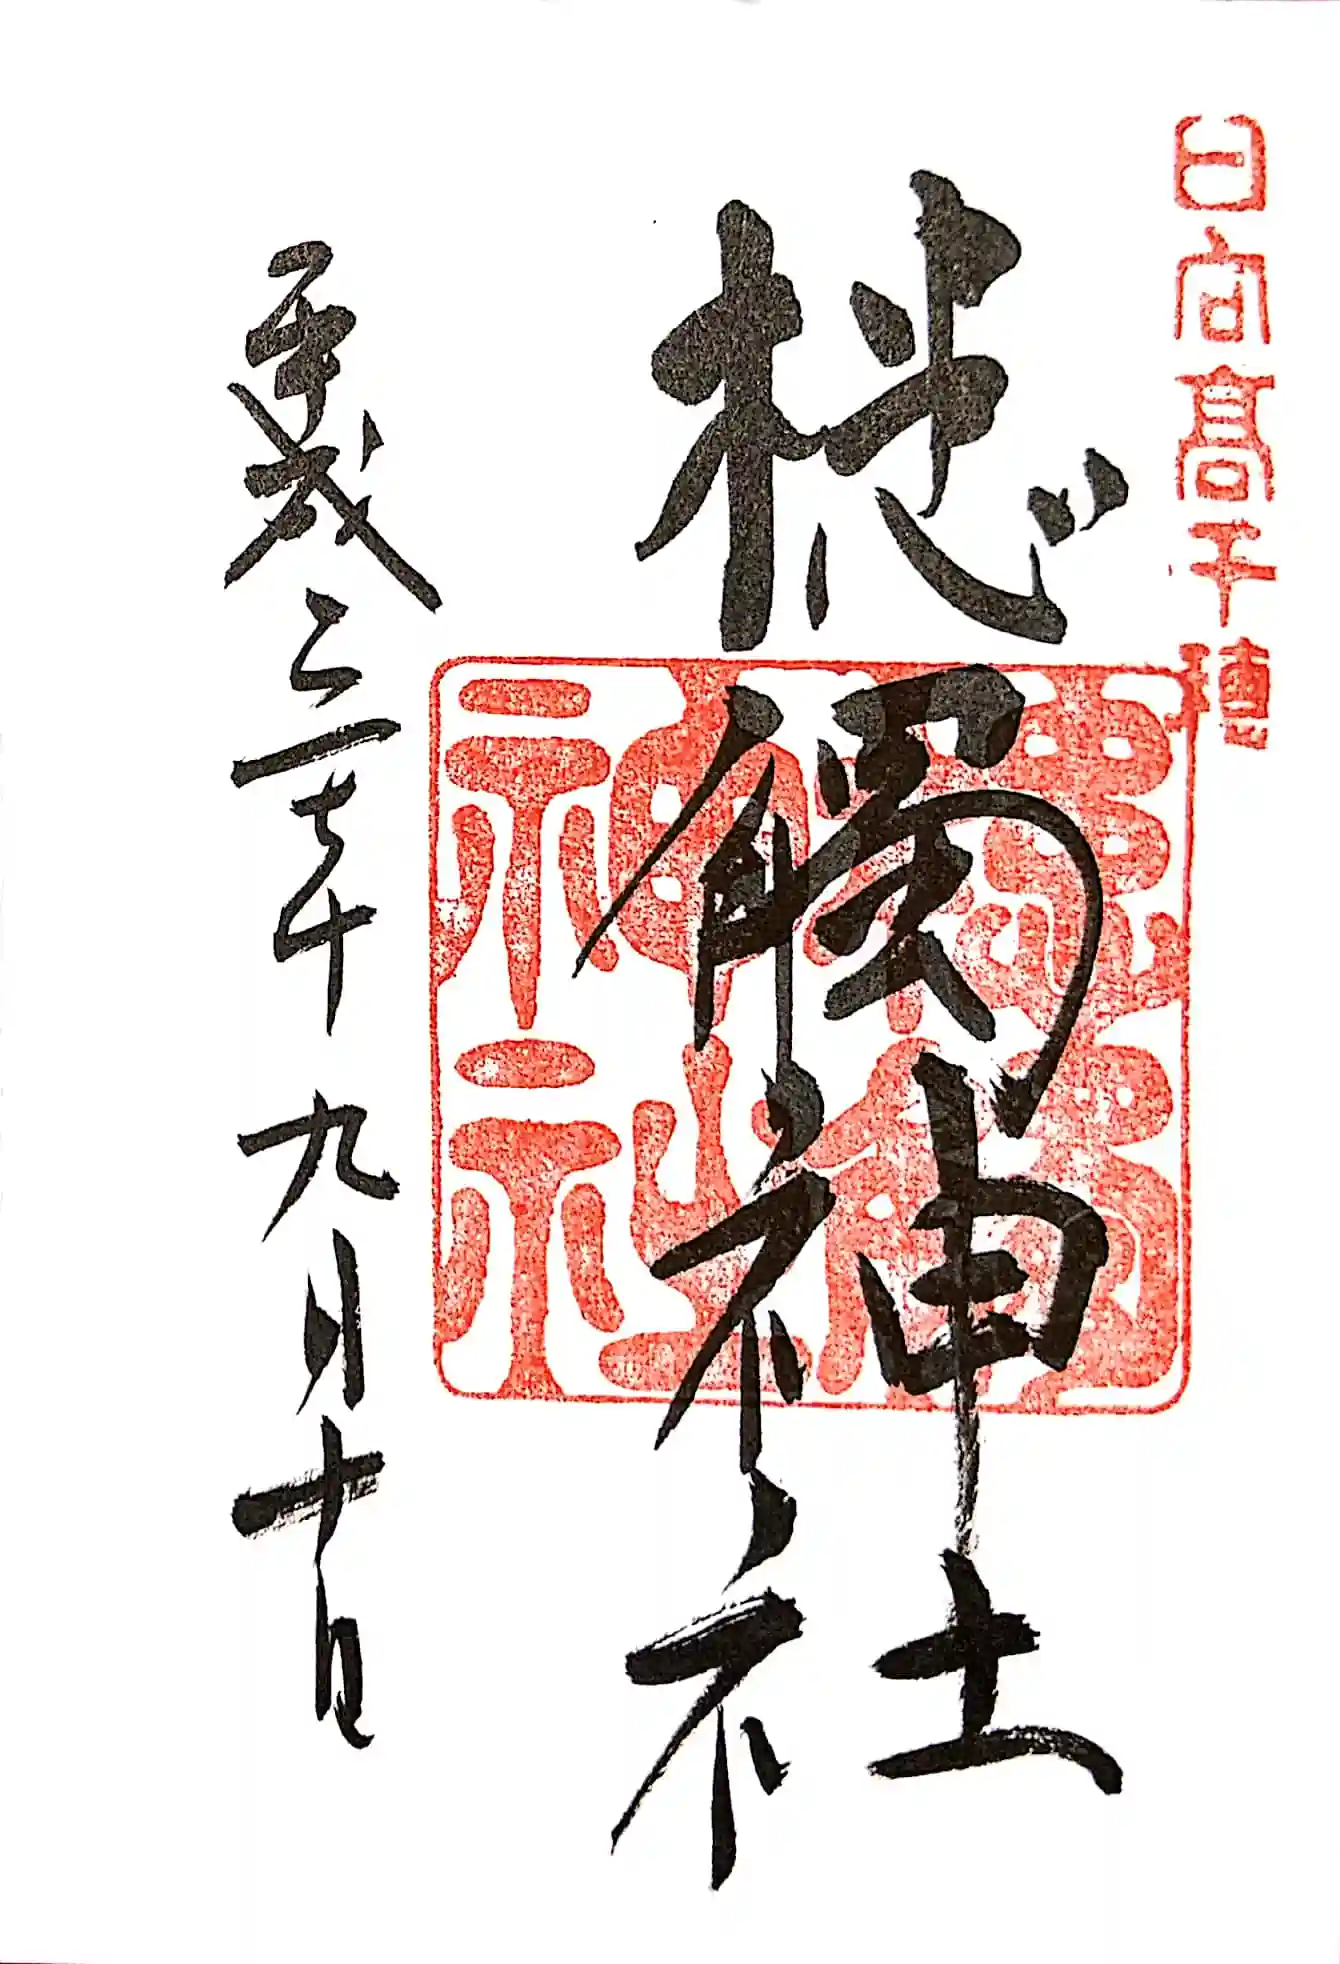 日向髙千穂
槵觸神社
平成三十年九月十日
槵觸
神社